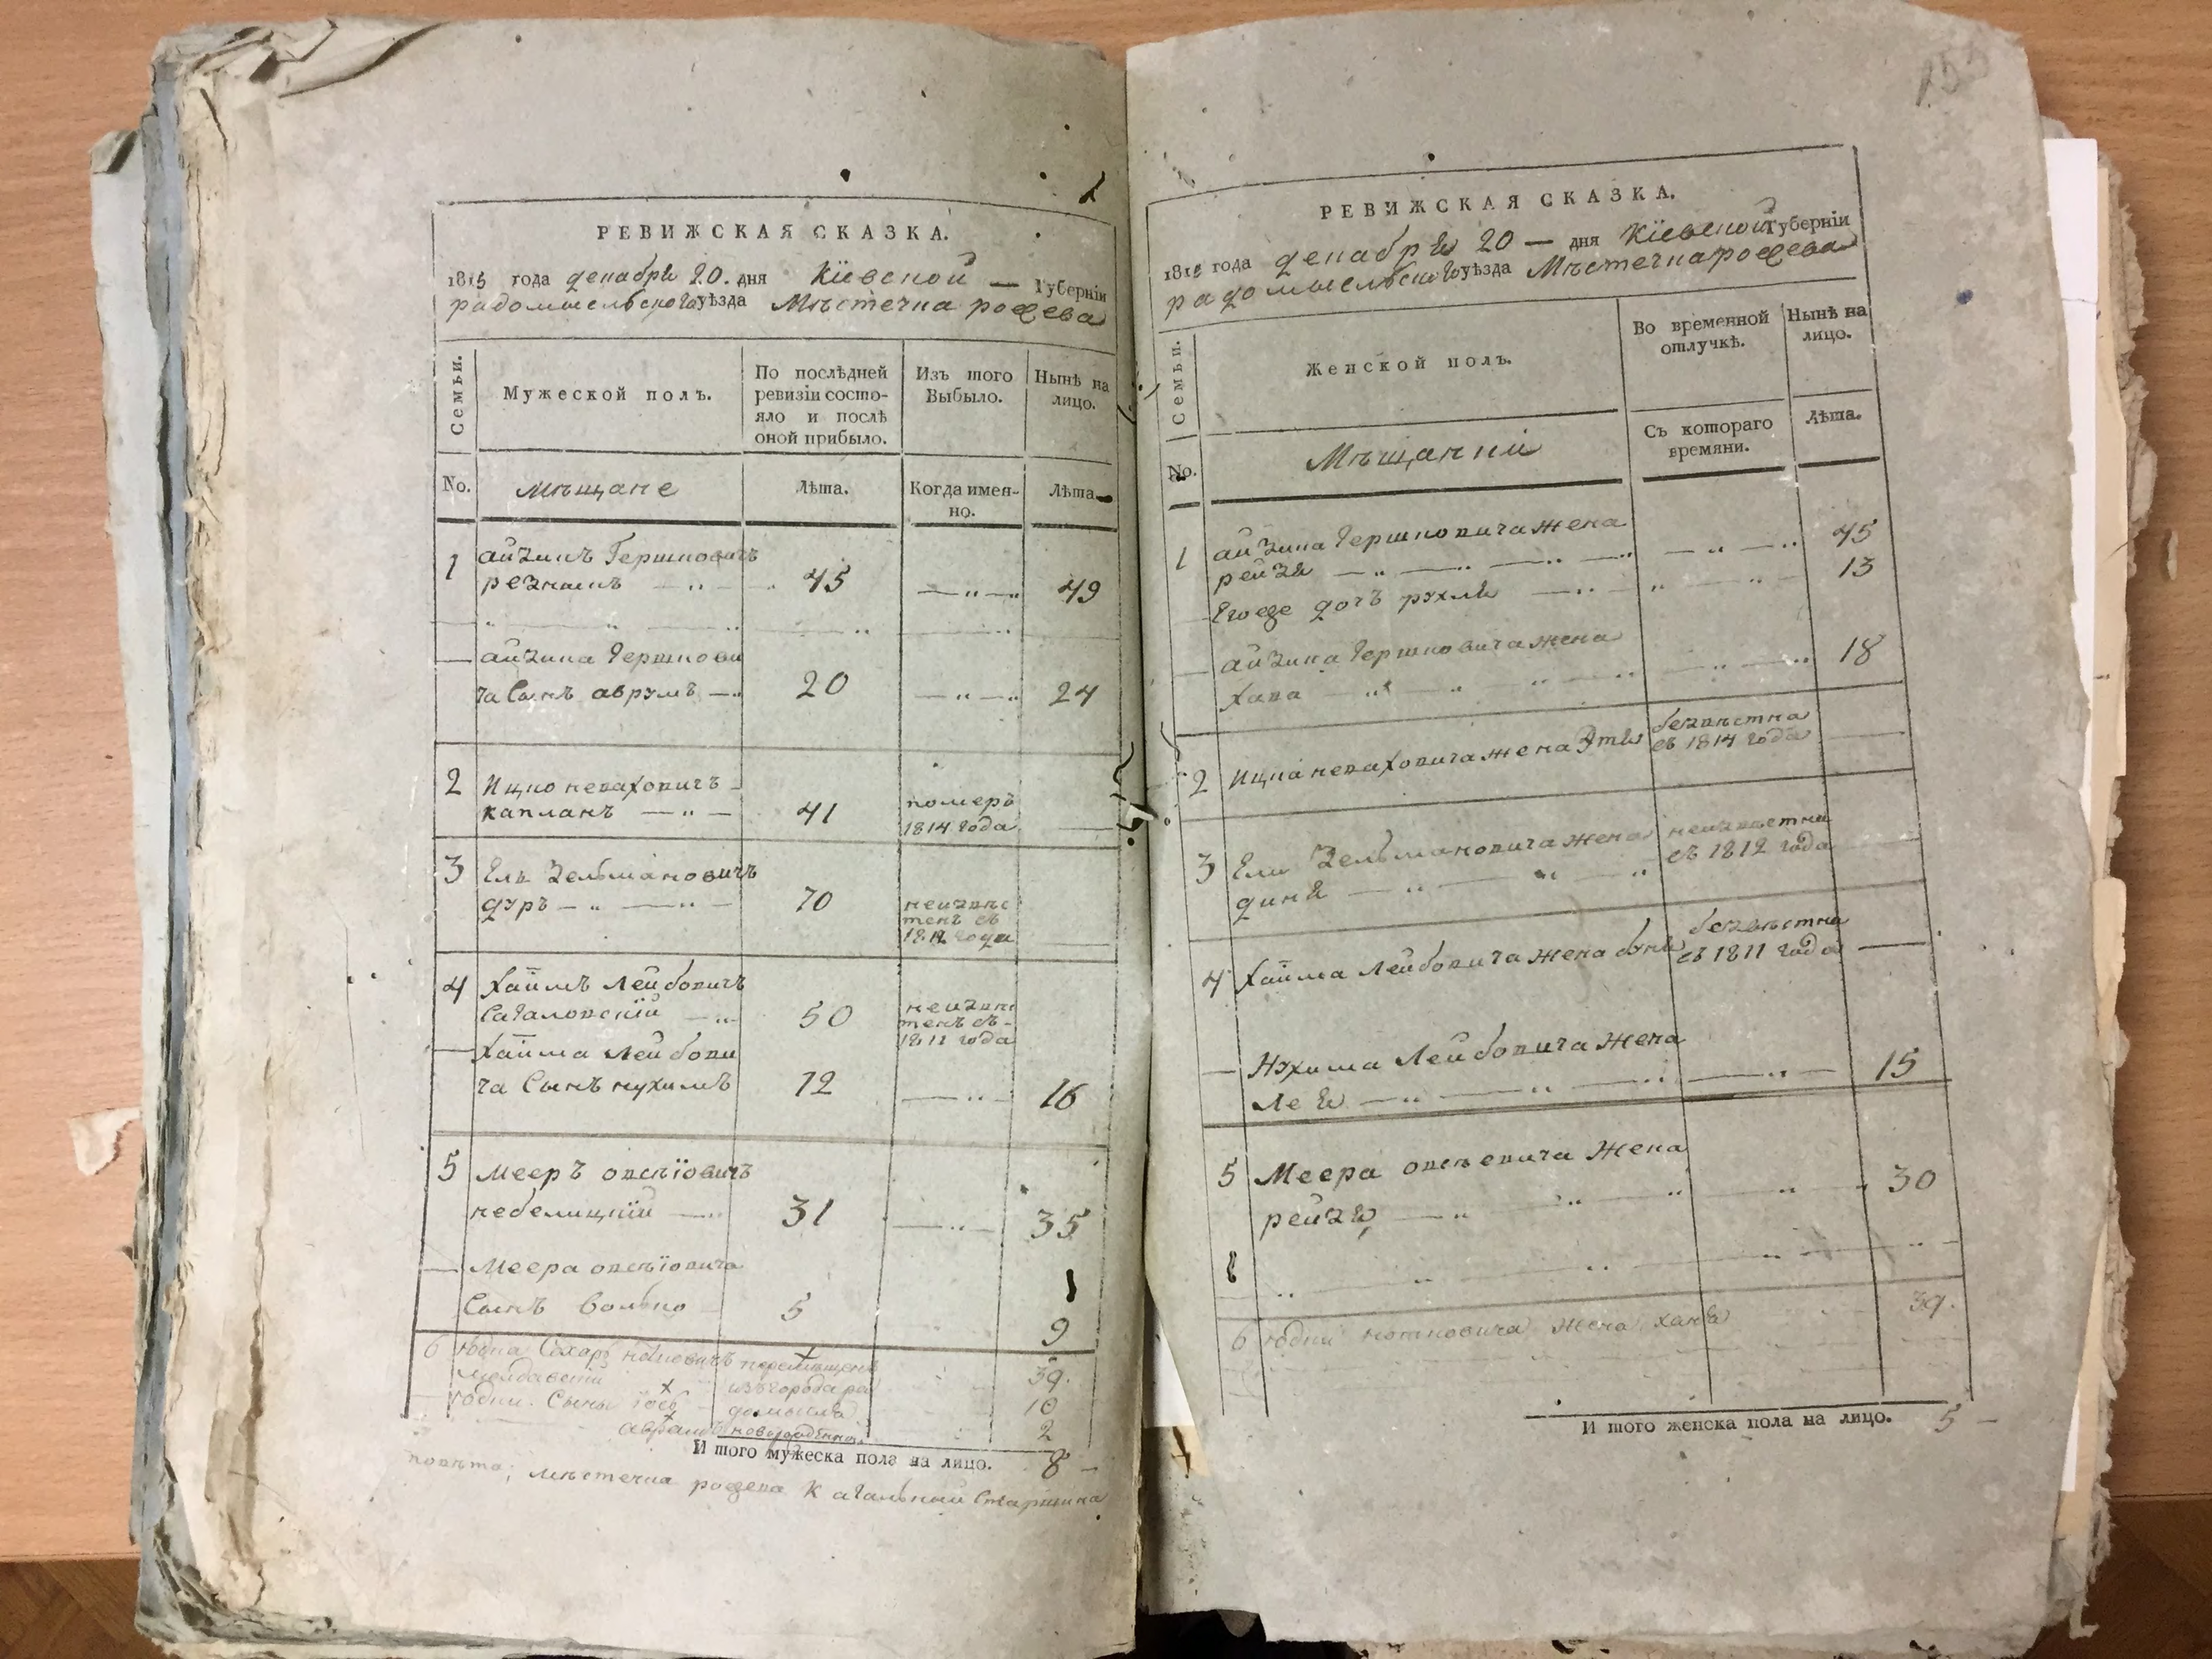 РЕВИЖСКАЯ СКАЗКА.
1815 года декабря 20. дня Кіевской — Губерніи
радомысльского уѣзда Мѣстечка рожева
Семьи.
Мужеской полъ.
По послѣдней
ревизіи состо-
яло и послѣ
оной прибыло.
Изъ того
Выбыло.
Нынѣ на
лицо.
No.
Мѣщане
Лѣта.
Когда имен-
но.
Лѣта
1 айзикъ Гершковичъ
резникъ 45 49
айзика Гершкови
ча Сынъ аврумъ 20 24
2 Ицко невахович
капланъ 41 померъ
1814 года
3 Ель Зельмановичъ
дуръ 70 неизвѣс
тенъ съ
1812 года
4 Хаимъ Лейбовичъ
Сагаловскій 50 неизвѣс
тенъ съ
1811 года
Хаима Лейбови
ча Сынъ нухимъ 12 16
5 Мееръ овсѣіовичъ
небелицкій 31 35
Меера овсѣіовича
Сынъ волько 5 9
6 юдка нотковичъ перемѣщенъ 39.
изъ города ра
юдки. Сыны іось домысля 10
абрамъ новорожденной 2
И того мужеска пола на лицо. 8 —
мѣстечка рожева Кагальный Старшина
155
РЕВИЖСКАЯ СКАЗКА.
1815 года декабря 20 — дня Кіевской Губерніи
радомысльского уѣзда Мѣстечка рожева
Семьи.
Женской полъ.
Во временной
отлучкѣ.
Нынѣ на
лицо.
No.
Мѣщанки
Съ котораго
времяни.
Лѣта.
1 айзика Гершковича жена
рейзя 45
Егоже дочь рухля 13
айзика Гершковича жена
Хава 18
2 Ицка неваховича жена Этя безвѣстна
съ 1814 года
3 Еля Зельмановича жена неизвѣстна
съ 1812 года
диня
4 Хаима Лейбовича жена буня безвѣстна
съ 1811 года
Нухима Лейбовича жена
Лея 15
5 Меера овсѣевича Жена
рейзя 30
6 юдки нотковича жена ханя 39.
И того женска пола на лицо. 5 —